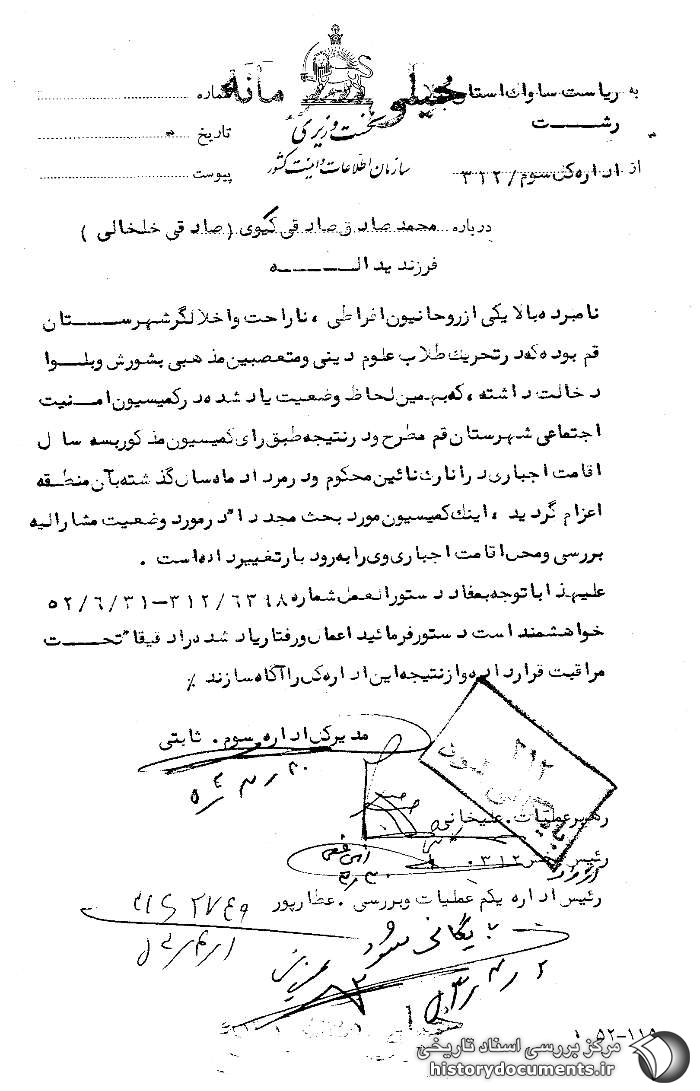 به ریاست ساواک استان
خیلی محرمانه
شماره
رشــــت
نخست وزیری
تاریخ
سازمان اطلاعات و امنیت کشور
پیوست
از اداره کل سوم / ۳۱۲
درباره محمد صادق صادقی گیوی (صادقی خلخالی)
فرزند یدالــــــه
نامبرده بالا یکی از روحانیون افراطی ، ناراحت و اخلالگر شهرســتان
قم بوده که در تحریک طلاب علوم دینی و متعصبین مذهبی بشورش و بلوا
دخالت داشته ، که بهمین لحاظ وضعیت یاد شده در کمیسیون امنیت
اجتماعی شهرستان قم مطرح و در نتیجه طبق رای کمیسیون مذکور بسه سال
اقامت اجباری در انارک نائین محکوم و در مرداد ماه سال گذشته بآن منطقه
اعزام گردید ، اینک کمیسیون مورد بحث مجددا" در مورد وضعیت مشارالیه
بررسی و محل اقامت اجباری وی را به رودبار تغییر داده است .
علیهذا با توجه بمفاد دستورالعمل شماره ۳۱۲/۶۳۹۸-۵۲/۶/۳۱
خواهشمند است دستور فرمائید اعمال و رفتار یاد شده را دقیقا" تحــت
مراقبت قرار داده و از نتیجه این اداره کل را آگاه سازند ٪
مدیرکل اداره سوم . ثابتی
۳۱۲
رهبر عملیات . علیخانی
رئیس بخش ۳۱۲ .
رئیس اداره یکم عملیات و بررسی . عطارپور
بایگانی شود
۵۲-۱۱۵
مرکز بررسی اسناد تاریخی
historydocuments.ir